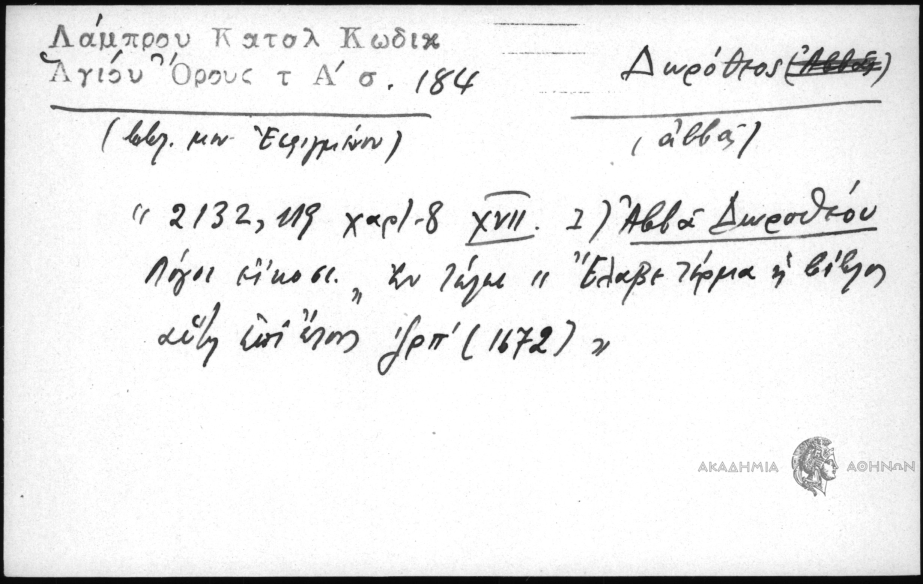 Λάμπρου Κατολ Κωδικ
Ἁγίου Ὄρους τ Α' σ. 184
Δωρόθεος (Ἀββᾶς)
(βιβλ. μον. Ἐσφιγμένου)
(ἀββᾶς)
" 2132, 119 χαρτ-8 XVII. 1) Ἀββᾶ Δωροθέου
Λόγοι εἴκοσι. " Ἐν τέλει " Ἔλαβε τέρμα ἡ βίβλος
αὕτη ἐπὶ ἔτους ͵ζρπ' (1672) "
ΑΚΑΔΗΜΙΑ ΑΘΗΝΩΝ